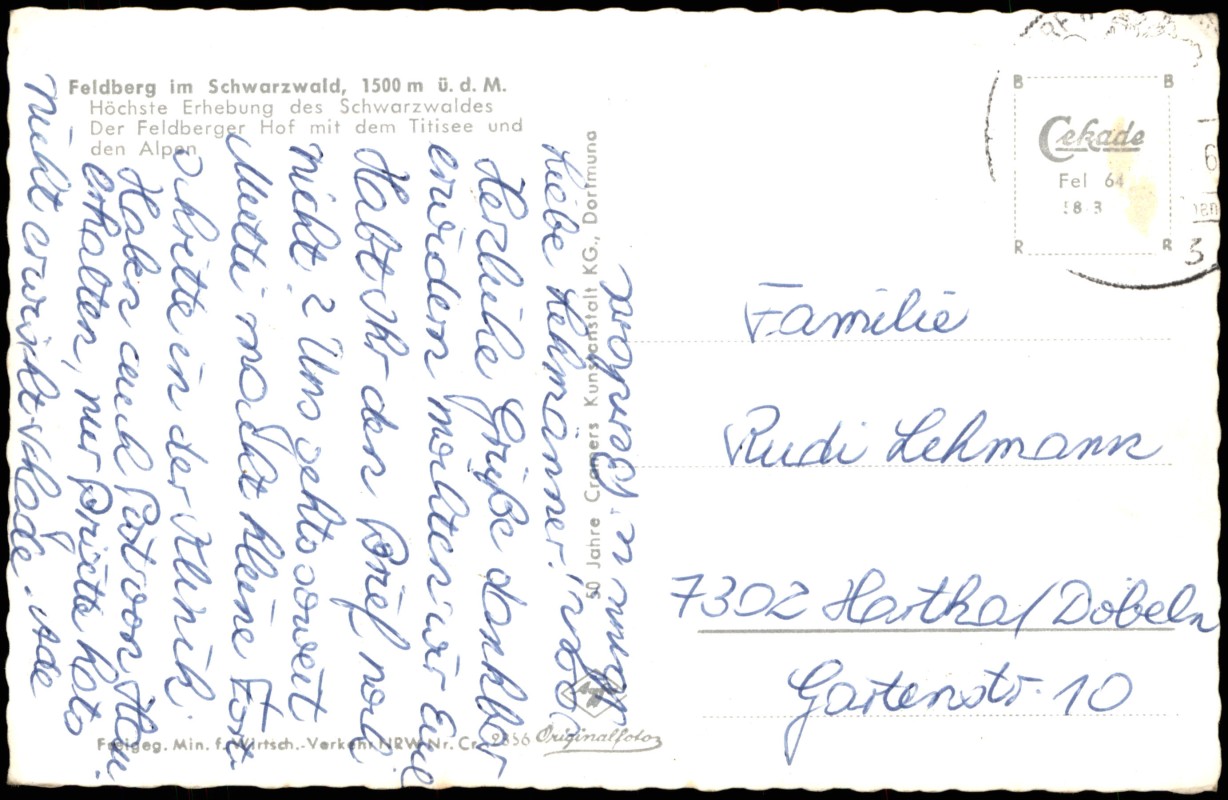 Feldberg im Schwarzwald, 1500 m ü. d. M.
Höchste Erhebung des Schwarzwaldes
Der Feldberger Hof mit dem Titisee und
den Alpen
Liebe Lehmänner!
Herzliche Grüße dankbar
erwidern möchten wir Euch
Habt Ihr den Brief noch
nicht? Uns geht's soweit
Mutti macht kleine Fort-
schritte in der Klinik.
Haben auch Post von
erhalten, nur
nicht erwischt. Schade. Ade
50 Jahre Cramers Kunstanstalt KG., Dortmund
Freigeg. Min. f. Wirtsch.-Verkehr NRW Nr. Cr. 2356
Originalfotos
B B
Cekade
Fel 64
58 3
R R
Familie
Rudi Lehmann
7302 Hartha/Döbeln
Gartenstr. 10